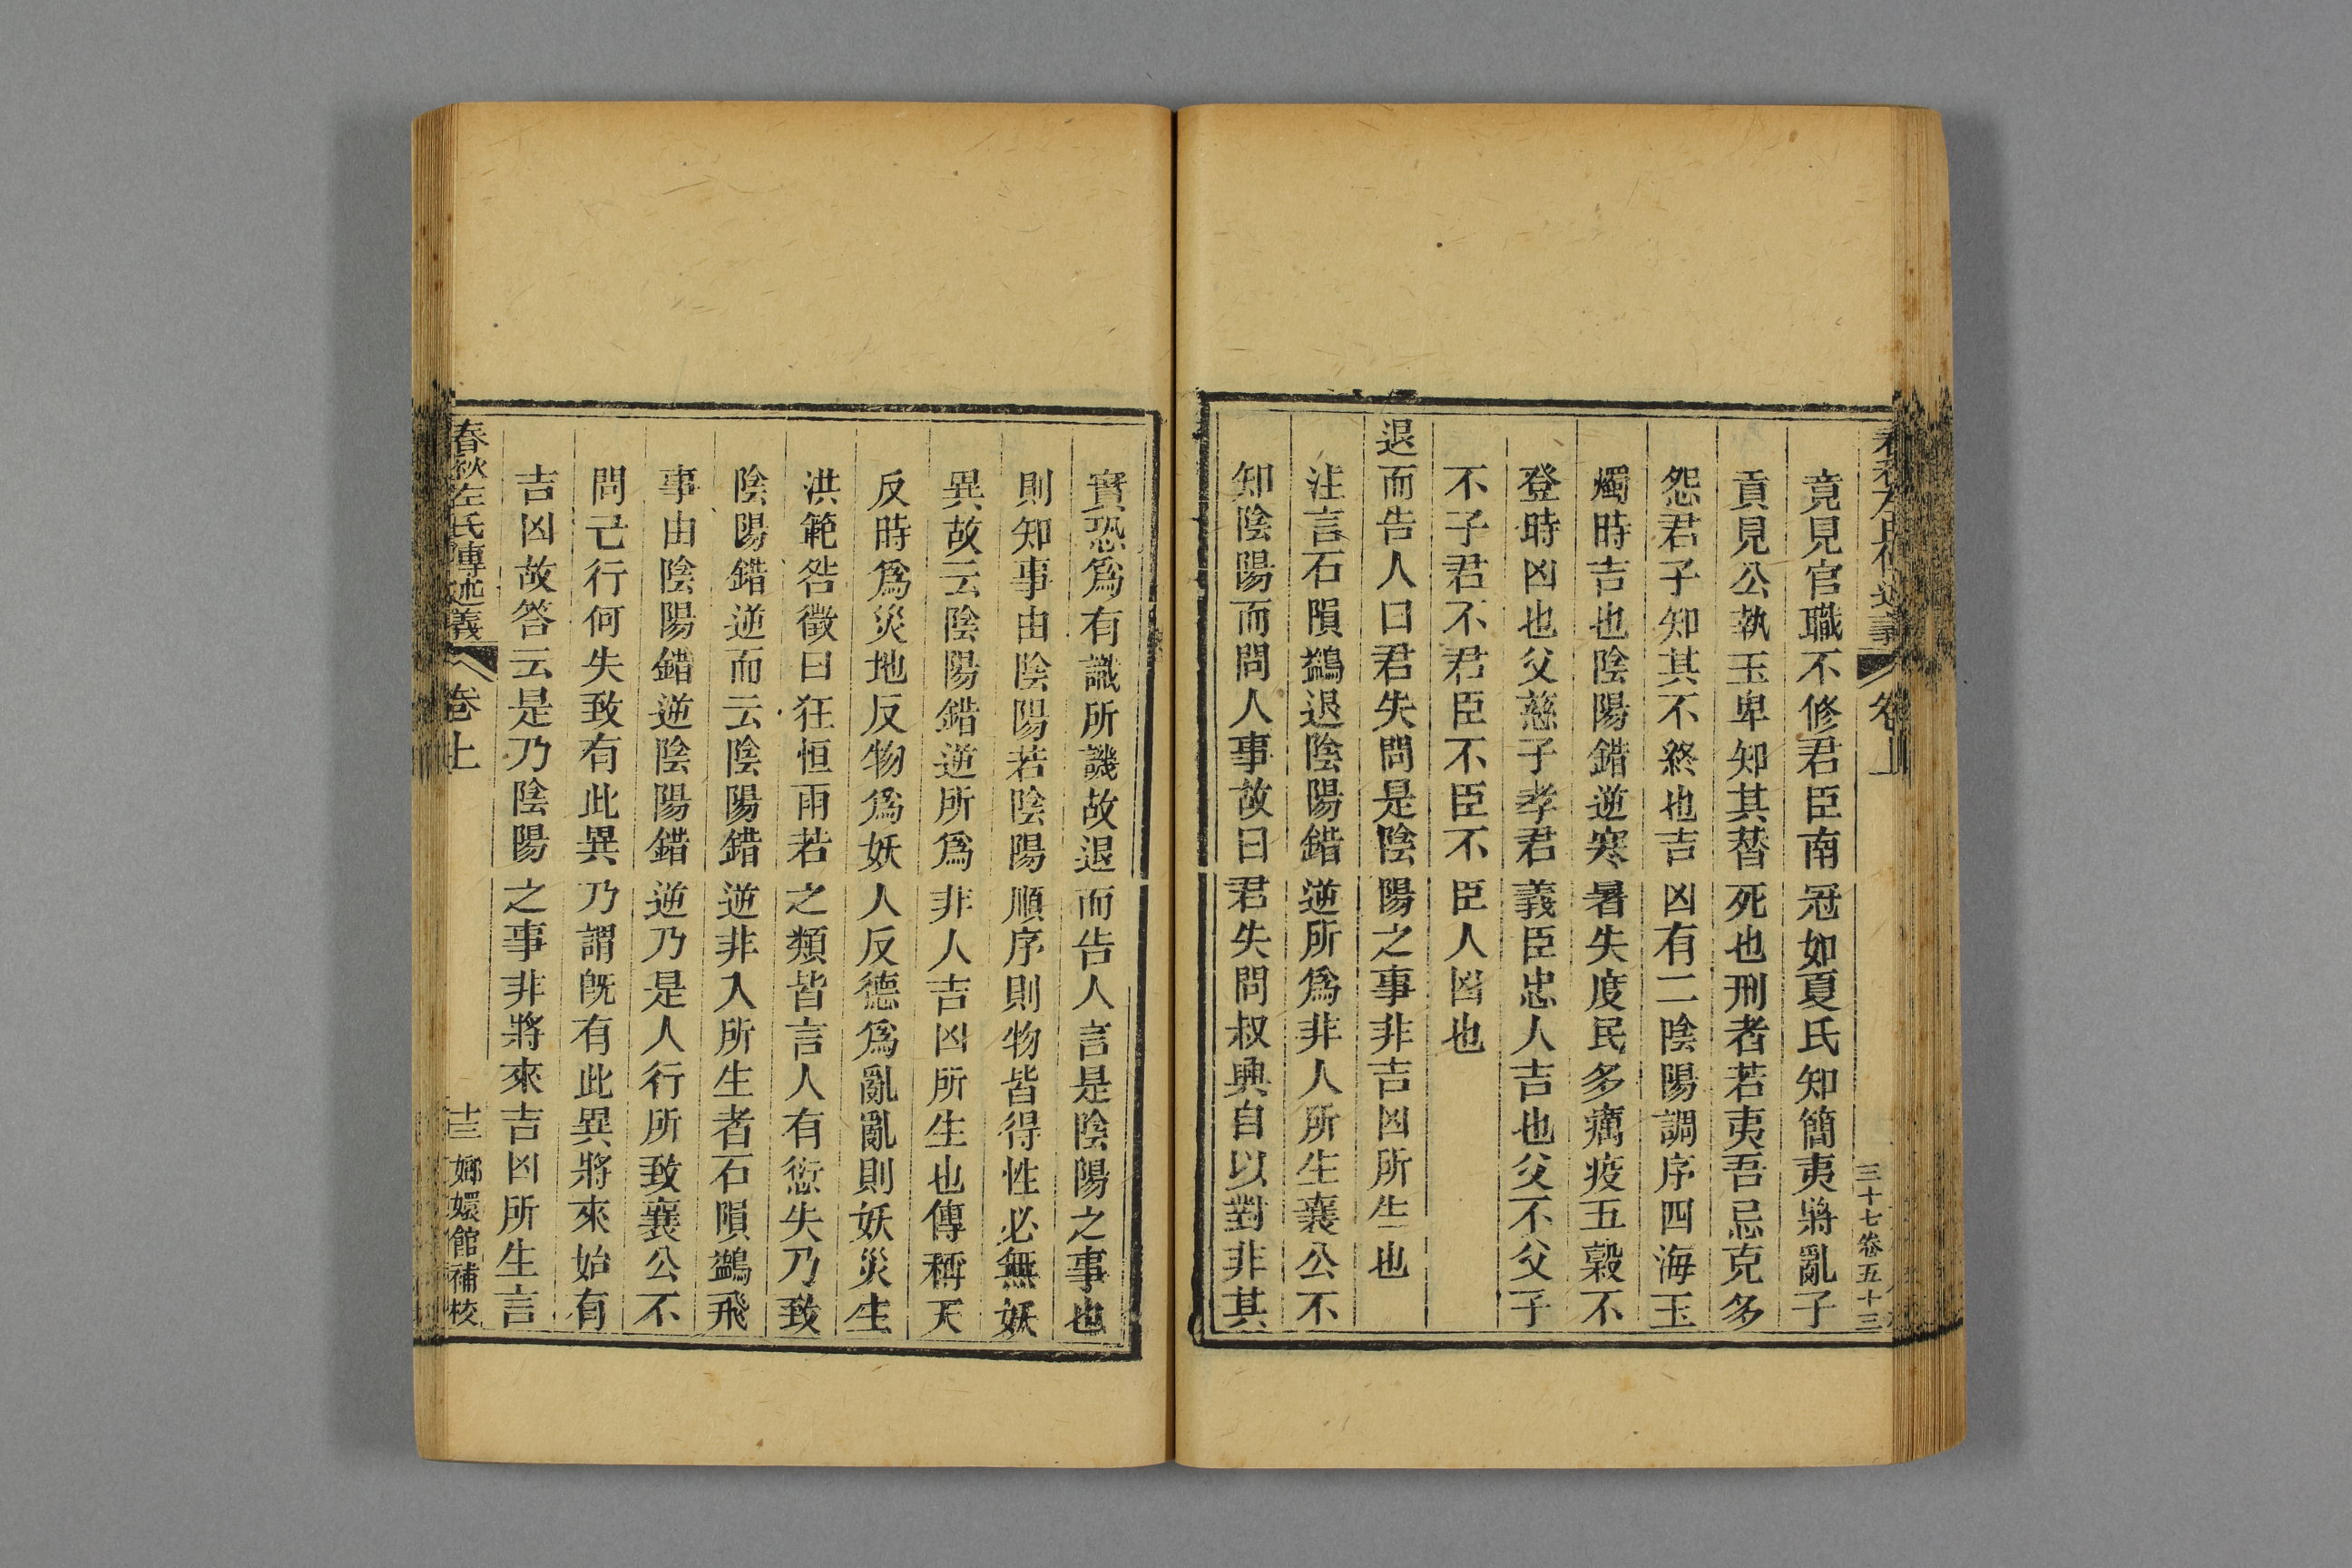 春秋左氏傳述義 卷上 三十七卷五十三
竟見官職不修君臣南冠如夏氏知簡夷將亂子
貢見公執玉卑知其替死也刑者若夷吾忌克多
怨君子知其不終也吉凶有二陰陽調序四海玉
燭時吉也陰陽錯逆寒暑失度民多癘疫五穀不
登時凶也父慈子孝君義臣忠人吉也父不父子
不子君不君臣不臣不臣人凶也
退而告人曰君失問是陰陽之事非吉凶所生也
注言石隕鷁退陰陽錯逆所爲非人所生襄公不
知陰陽而問人事故曰君失問叔興自以對非其
實恐爲有識所譏故退而告人言是陰陽之事也
則知事由陰陽若陰陽順序則物皆得性必無妖
異故云陰陽錯逆所爲非人吉凶所生也傳稱天
反時爲災地反物爲妖人反德爲亂亂則妖災生
洪範咎徵曰狂恒雨若之類皆言人有愆失乃致
陰陽錯逆而云陰陽錯逆非人所生者石隕鷁飛
事由陰陽錯逆陰陽錯逆乃是人行所致襄公不
問己行何失致有此異乃謂旣有此異將來始有
吉凶故答云是乃陰陽之事非將來吉凶所生言
春秋左氏傳述義 卷上 十三 嫏嬛館補校